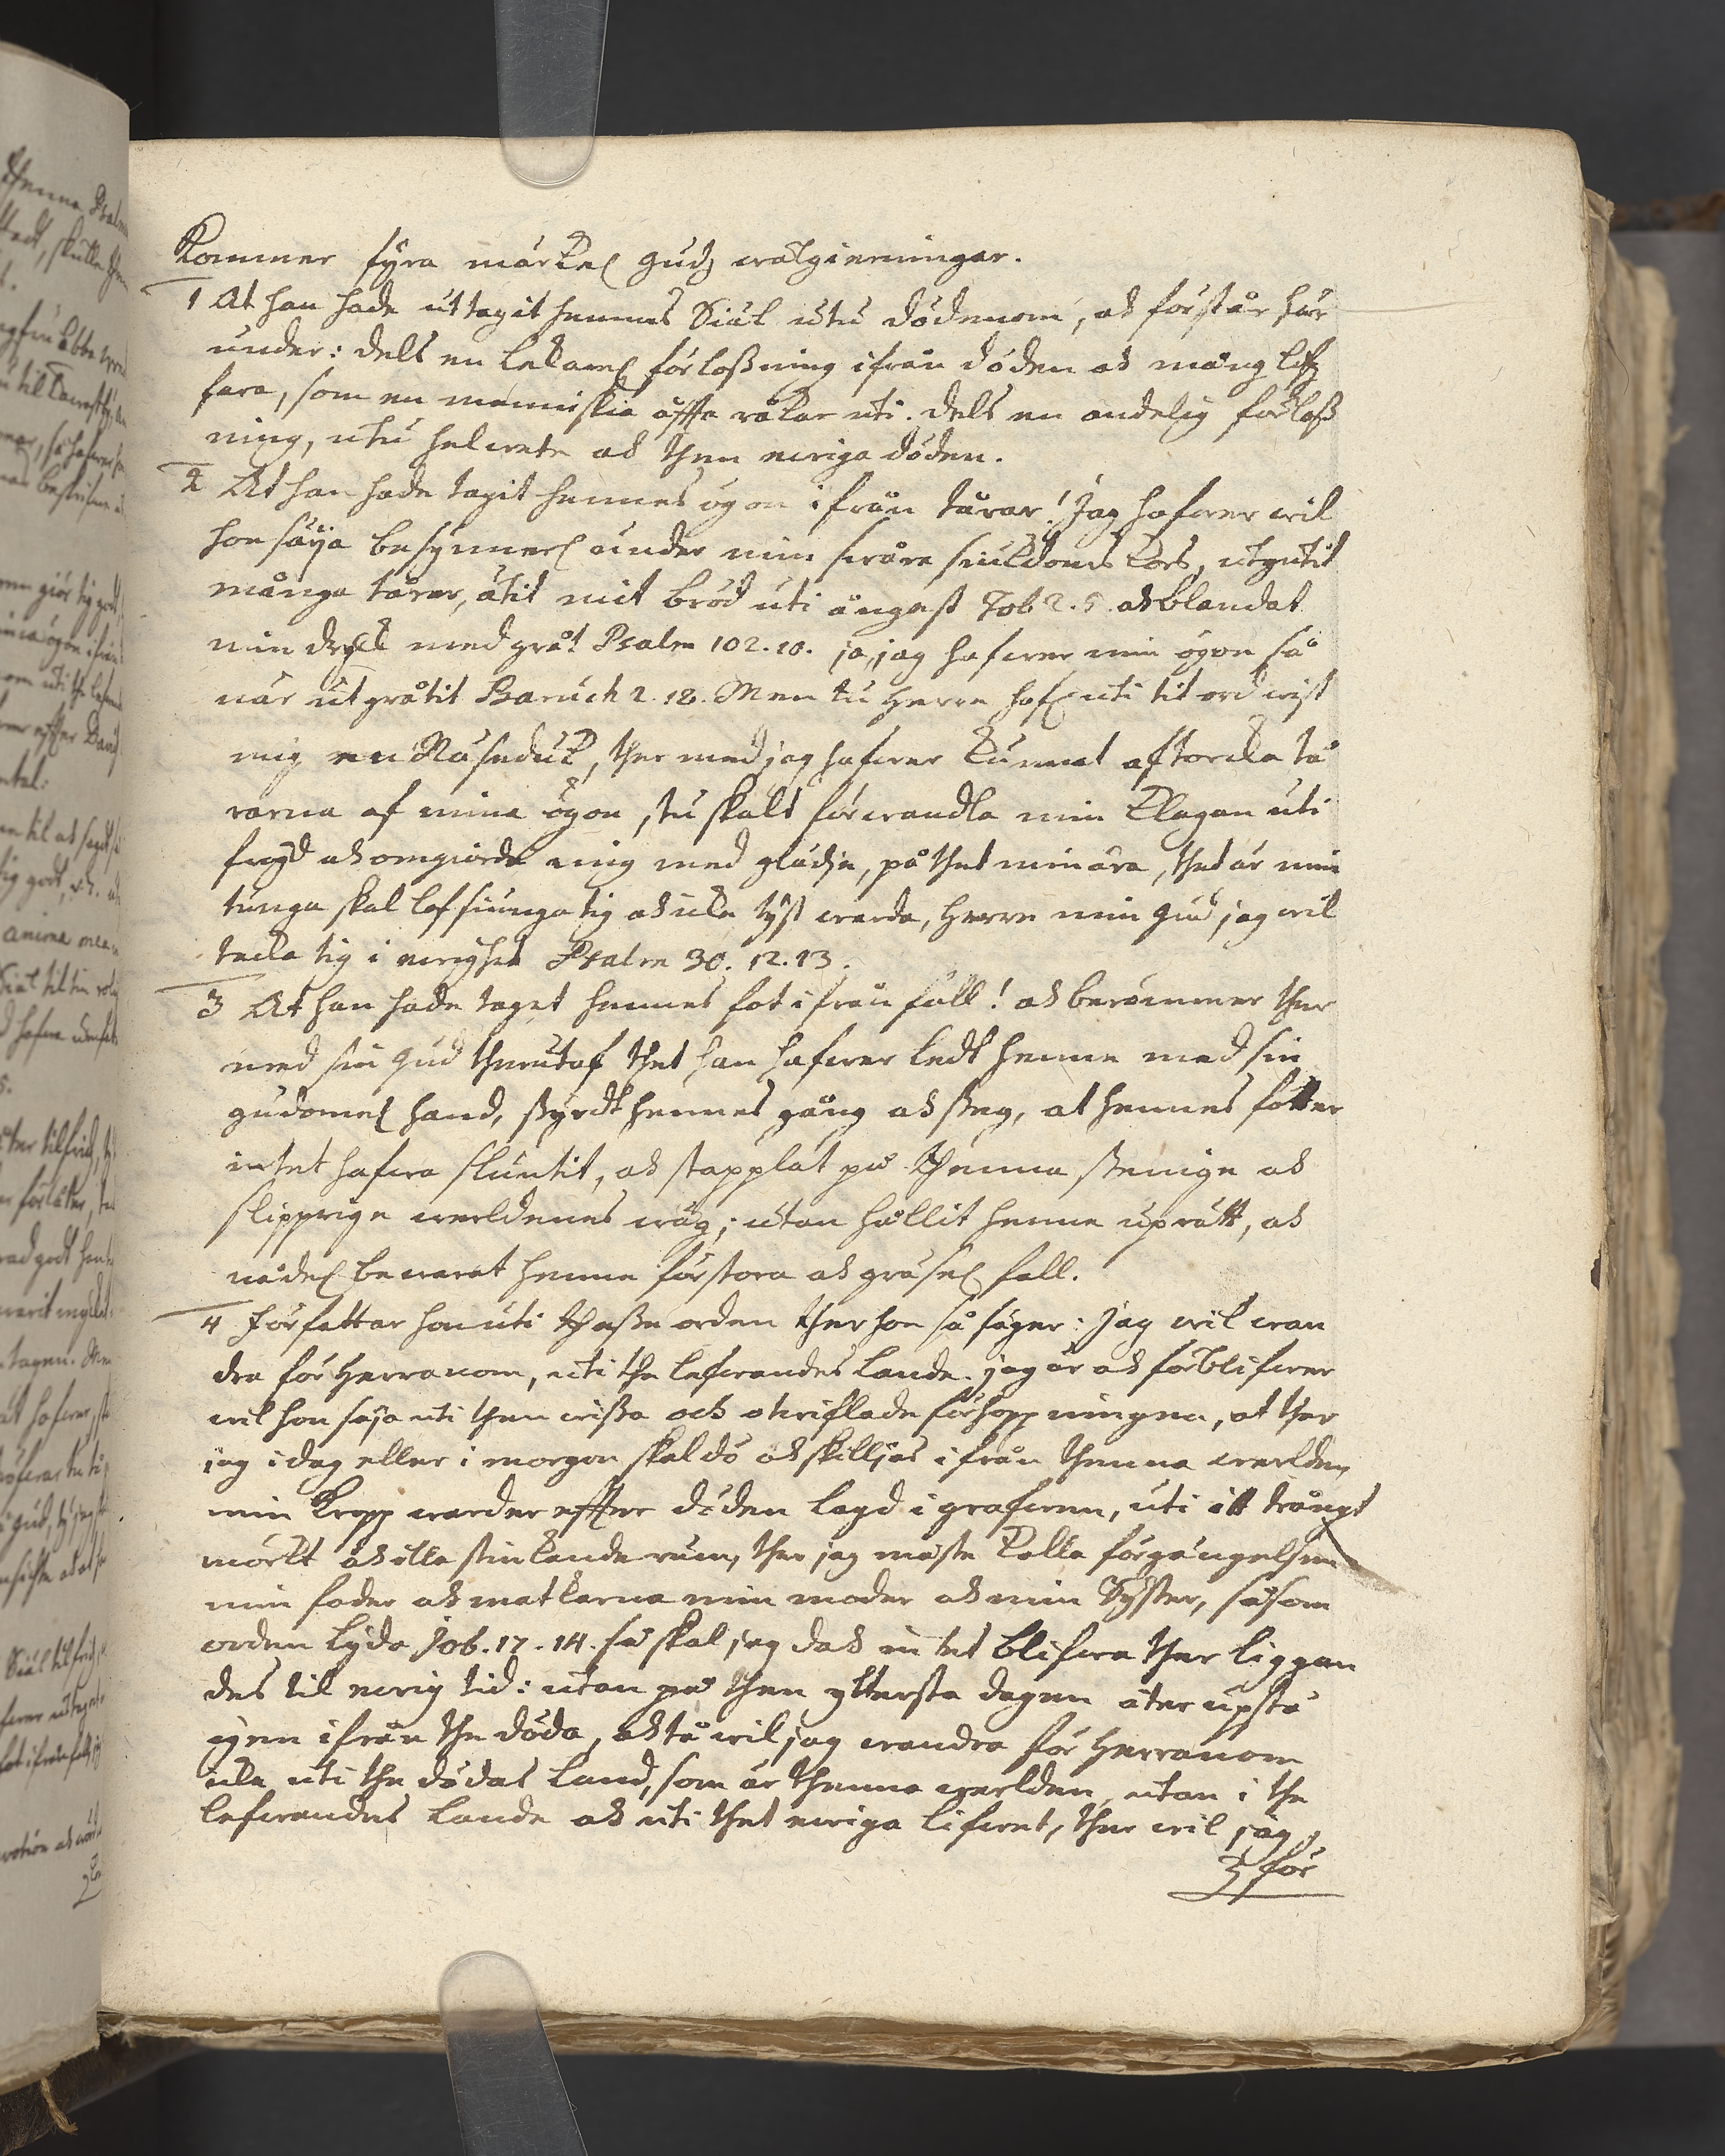 Kommer fyra märkel Gudz wälgierningar.
1 At han hade uttagit hennes Siäl utu dödenom, ok förstår här
under: dels en lekamel förloßning ifrån döden ok mång lifz
fara, som en menniskia offta råkar uti. dels en andelig förloß
ning, utu helwete ok then ewiga döden.
2 At han hade tagit hennes ögon ifrån tårar! Jag hafwer wil
hon säÿa besynnerl under min swåra siukdoms kors, utgutit
många tårar, ätit mit bröd uti ångest Tob 2.5. ok blandat
min dryck med gråt Psalm 102.10. ja, jag hafwer min ögon så
när utgråtit Baruch 2.18. Men tu Herre hafr uti tit ord wist
mig en Näseduk, ther med jag hafwer kunnat aftorcka tå
rarna af mina ögon, tu skalt förwandla min klagan uti
frögd ok omgiorda mig med glädie, på thet min ära, thet är min
tunga skal lofsiunga tig ok icke tyst warda, Herre min Gud jag wil
tacka tig i ewighet Psalm 30.12.13.
3 At han hade taget hennes fot ifrån fall! ok berömmer ther
med sin Gud therutaf thet han hafwer ledt henne med sin
gudomel hand, styrdt hennes gång ok steg, at hennes fötter
intet hafwa sluntit, ok stapplat på thenna stenige ok
slipprige werldenes wäg; utan hållit henne uprätt, ok
nådel bewarat henne för stora ok gräsel fall.
4 Författar hon uti theße orden ther hon så säger: Jag wil wan
dra för Herranom, uti the lefwandes lande. jag är ok förblifwer
wil hon säja uti then wißa och otwiflade förhoppningen, at ther
jag idag eller i morgon skal dö ok skilljas ifrån thenna werlden,
min kropp warder effter döden lagd i grafwen, uti itt trångt
mörkt ok illa stinkande rum, ther jag måste kalla förgängelsen
min fader ok matkarna min moder ok min Syster, såsom
orden lyda Job. 17.14. så skal jag dok intet blifwa ther liggan
des til ewig tid: utan på then yttersta dagen åter upstå
igen ifrån the döda, ok tå wil jag wandra för Herranom
icke uti the dödas land, som är thenna werlden, utan i the
lefwandes lande ok uti thet ewiga lifwet, ther wil jag
för